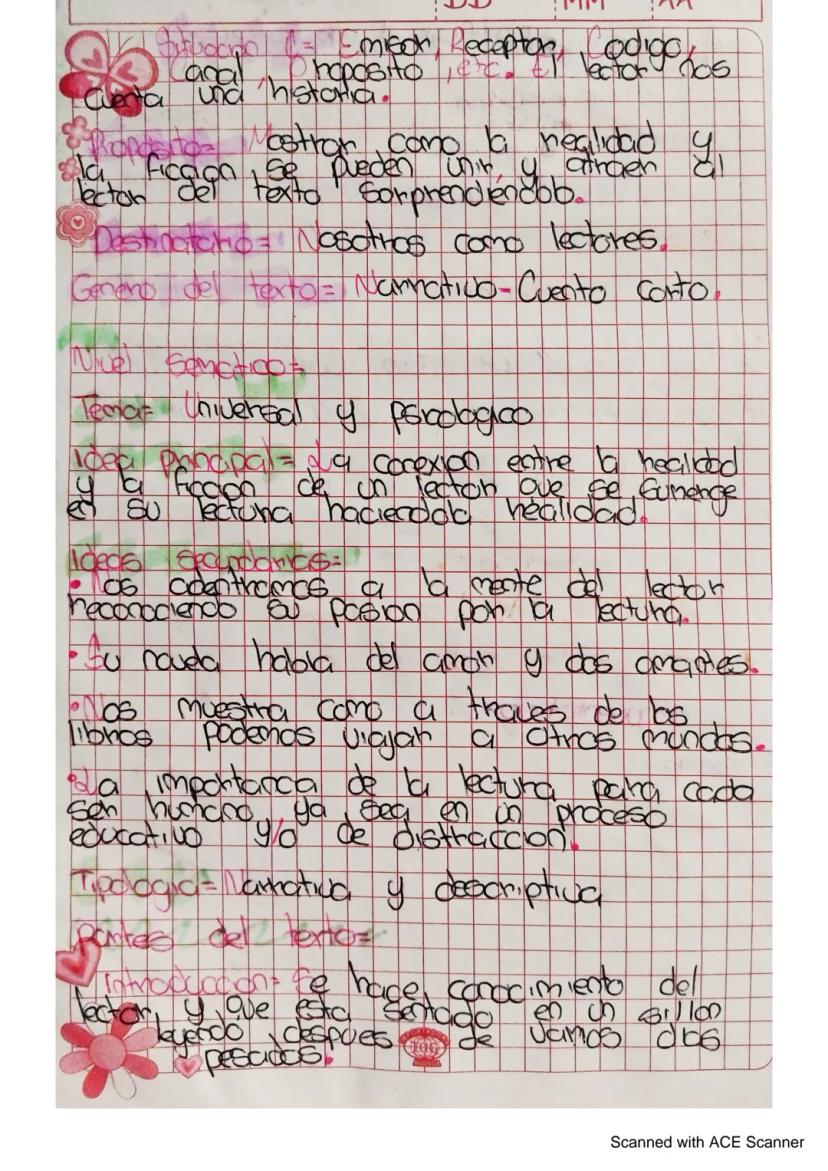 DD MM AA
Situacion C= Emisor, Receptor, Codigo,
Canal, Proposito, etc. El lector nos
cuenta una historia.
Proposito= Mostrar como la realidad y
la ficcion se pueden unir y atraen al
lector del texto sorprendiendolo.
Destinatario= Nosotros como lectores.
Genero del texto= Narrativo-Cuento corto.
Nivel Semactico=
Tema= Universal y psicologico
Idea principal= La conexion entre la realidad
y la ficcion de un lector que se sumerge
en su lectura haciendola realidad.
Ideas secundarias=
• Nos adentramos a la mente del lector
reconociendo su pasion por la lectura.
• Su novela habla del amor y dos amantes.
• Nos muestra como a traves de los
libros podemos viajar a otros mundos.
• La importancia de la lectura para cada
ser humano ya sea en un proceso
educativo y/o de distraccion.
Tipologia= Narrativa y descriptiva
Partes del texto=
Introduccion= Se hace conocimiento del
lector, y que esta sentado en un sillon
leyendo despues de varios dias
pesados.
TOG
Scanned with ACE Scanner